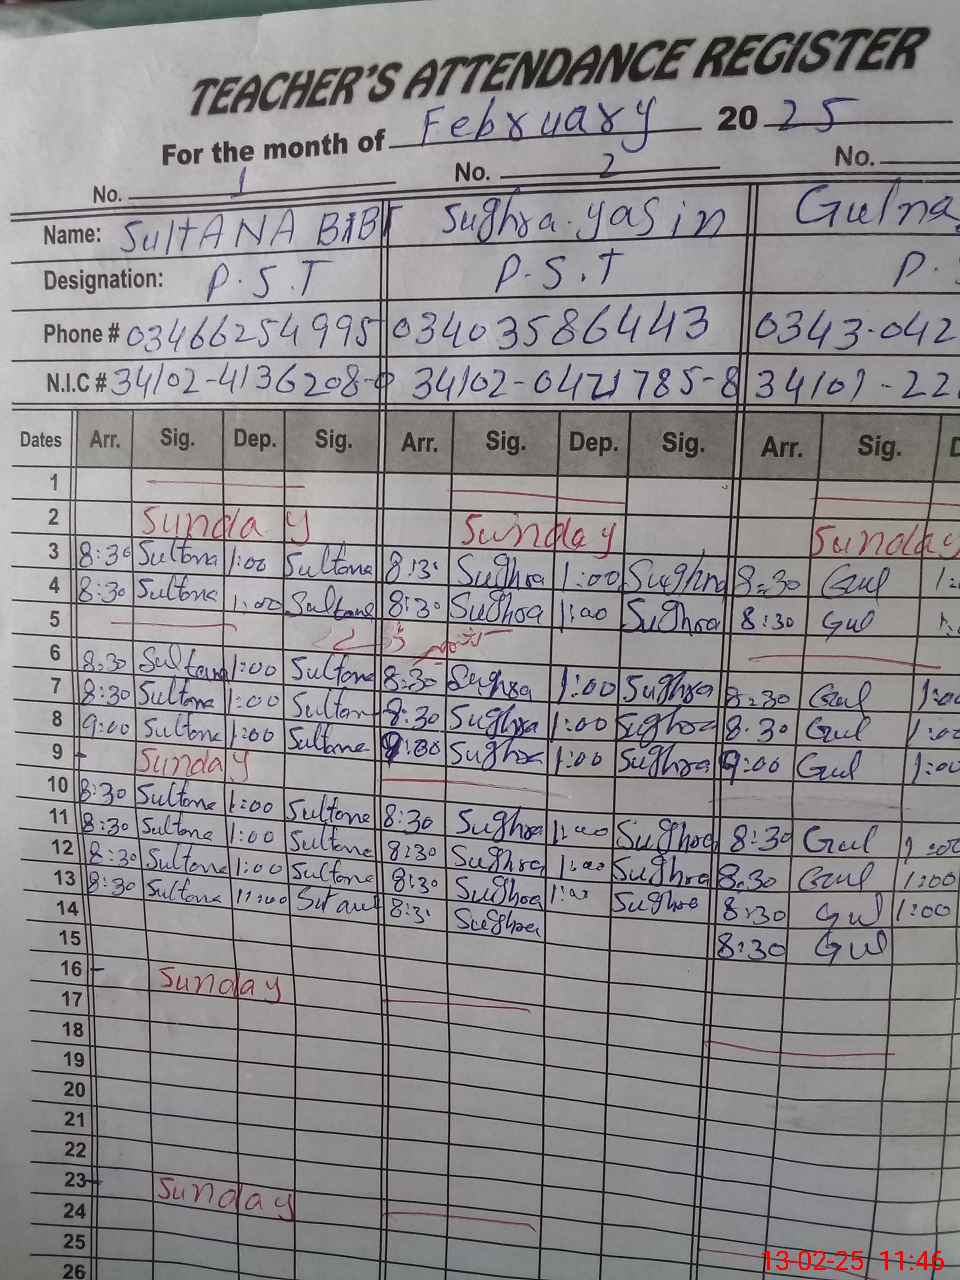 TEACHER'S ATTENDANCE REGISTER
For the month of February 20 25
No. 1 No. 2 No.
Name: SultANA BiBI Sughra yasin Gulna
Designation: P.S.T P.S.T P.
Phone # 03466254995 03403586443 0343-042
N.I.C # 34102-4136208- 34102-0471785-8 34101-22
Dates Arr. Sig. Dep. Sig. Arr. Sig. Dep. Sig. Arr. Sig. D
1
2 Sunday Sunday Sunday
3 8:30 Sultana 1:00 Sultana 8:3 Sughra 1:00 Sughra 8:30 Gul 1:
4 8:30 Sultana 1:00 Sultana 8:30 Sughra 1:00 Sughra 8:30 Gul
5
6 8:30 Sultana 1:00 Sultana 8:30 Sughra 1:00 Sughra 8:30 Gul 1:00
7 8:30 Sultana 1:00 Sultan 8:30 Sughra 1:00 Sughra 8:30 Gul 1:00
8 9:00 Sultana 1:00 Sultana 9:00 Sughra 1:00 Sughra 9:00 Gul 1:00
9 Sunday
10 8:30 Sultana 1:00 Sultana 8:30 Sughra 1:00 Sughra 8:30 Gul 1:00
11 8:30 Sultana 1:00 Sultana 8:30 Sughra 1:00 Sughra 8:30 Gul 1:00
12 8:30 Sultana 1:00 Sultana 8:30 Sughra 1:00 Sughra 8:30 Gul 1:00
13 8:30 Sultana 11:00 8:3 Sughra 8:30 Gul
14
15
16 Sunday
17
18
19
20
21
22
23 Sunday
24
25
26
13-02-25 11:46